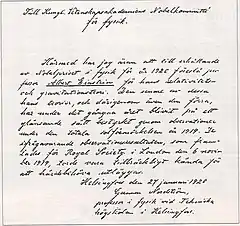 Till Kungl. Vetenskapsakademiens Nobelkommitté
för fysik.
Härmed har jag äran att till erhållande
av Nobelpriset i fysik för år 1920 föreslå pro-
fessor Albert Einstein för hans relativitets-
och gravitationsteori. Den senare av dessa
hans teorier, och därigenom även den förra,
har under det gångna året blivit på ett
glänsande sätt bestyrkt genom observationer
under den totala solförmörkelsen in 1919. De
ifrågavarande observationsresultaten, som fram-
lades för Royal Society i London den 6 novem-
ber 1919, torde vara tillräckligt kända för
att här behöva utläggas.
Helsingfors den 27 januari 1920
Gunnar Nordström,
professor i fysik vid Tekniska
högskolan i Helsingfors.